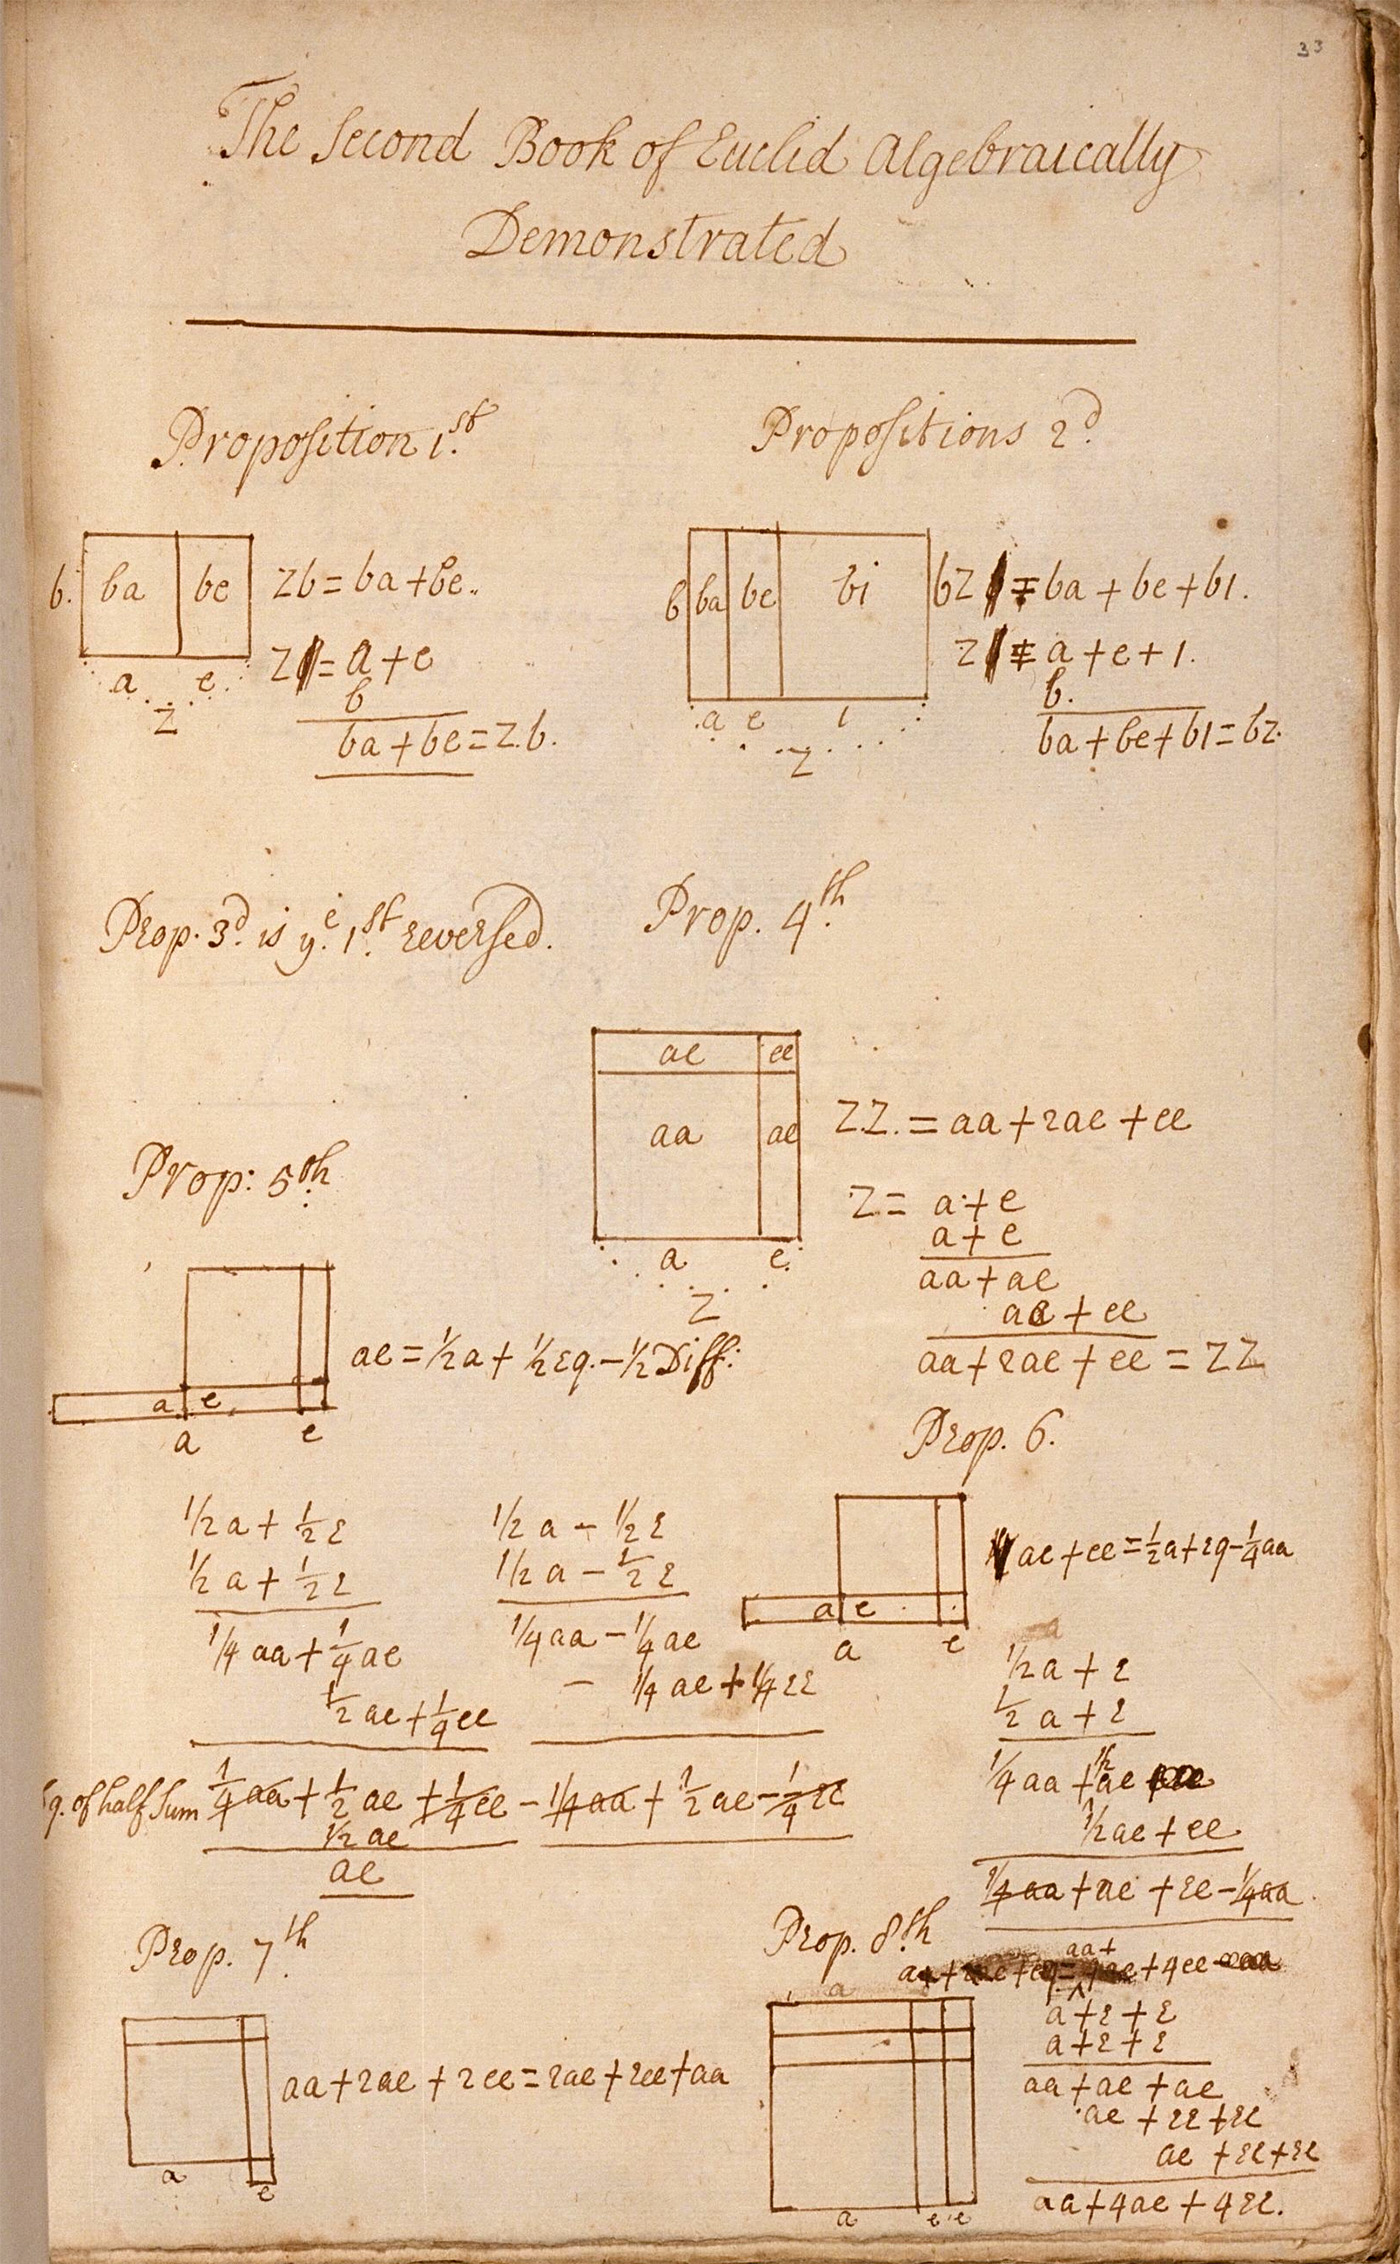 33
The Second Book of Euclid Algebraically
Demonstrated
Proposition 1st.
b. ba be Zb = ba + be..
Z = a + e
b
ba + be = Z.b.
a e
Z
Propositions 2d.
b ba be bi bZ = ba + be + b1.
Z = a + e + 1.
b.
ba + be + b1 = bz.
a e 1
Z
Prop. 3d. is ye. 1st. reversed.
Prop. 4th.
ae ee
aa ae
a e
Z
ZZ. = aa + 2ae + ee
Z = a + e
a + e
aa + ae
ae + ee
aa + 2ae + ee = ZZ
Prop: 5th.
a e
a e
ae = 1/2 a + 1/2 eq. - 1/2 Diff:
1/2 a + 1/2 e
1/2 a + 1/2 e
1/4 aa + 1/4 ae
1/2 ae + 1/4 ee
1/2 a - 1/2 e
1/2 a - 1/2 e
1/4 aa - 1/4 ae
- 1/4 ae + 1/4 ee
q. of half Sum 1/4 aa + 1/2 ae + 1/4 ee - 1/4 aa + 1/2 ae - 1/4 ee
1/2 ae
ae
Prop. 6.
a e
a e
ae + ee = 1/2 a + eq - 1/4 aa
a
1/2 a + e
1/2 a + e
1/4 aa + 1/2 ae
1/2 ae + ee
1/4 aa + ae + ee - 1/4 aa
Prop. 7th.
a
e
aa + 2ae + 2ee = 2ae + 2ee + aa
Prop. 8th.
aa +
+ 4ee
a
a e e
a + e + e
a + e + e
aa + ae + ae
ae + ee + ee
ae + ee + ee
aa + 4ae + 4ee.